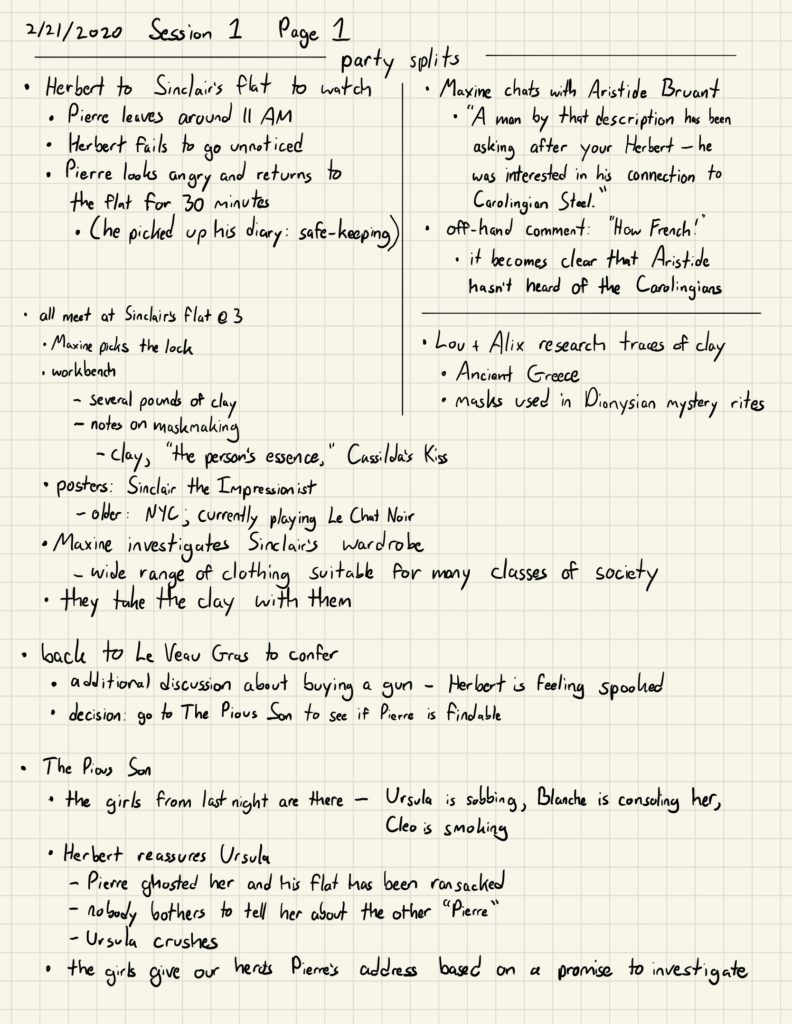 2/21/2020 Session 1 Page 1
party splits
• Herbert to Sinclair's flat to watch
• Pierre leaves around 11 AM
• Herbert fails to go unnoticed
• Pierre looks angry and returns to
the flat for 30 minutes
• (he picked up his diary: safe-keeping)
• Maxine chats with Aristide Bruant
• "A man by that description has been
asking after your Herbert – he
was interested in his connection to
Carolingian Steel."
• off-hand comment: "How French!"
• it becomes clear that Aristide
hasn't heard of the Carolingians
• Lou + Alix research traces of clay
• Ancient Greece
• masks used in Dionysian mystery rites
• all meet at Sinclair's flat @ 3
• Maxine picks the lock
• workbench
– several pounds of clay
– notes on maskmaking
– clay, "the person's essence," Cassilda's Kiss
• posters: Sinclair the Impressionist
– older: NYC; currently playing Le Chat Noir
• Maxine investigates Sinclair's wardrobe
– wide range of clothing suitable for many classes of society
• they take the clay with them
• back to Le Veau Gras to confer
• additional discussion about buying a gun – Herbert is feeling spooked
• decision: go to The Pious Son to see if Pierre is findable
• The Pious Son
• the girls from last night are there – Ursula is sobbing, Blanche is consoling her,
Cleo is smoking
• Herbert reassures Ursula
– Pierre ghosted her and his flat has been ransacked
– nobody bothers to tell her about the other "Pierre"
– Ursula crushes
• the girls give our heros Pierre's address based on a promise to investigate